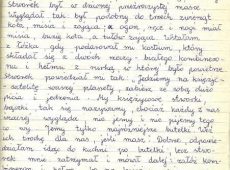 stworek był w dziwnej przezroczystej masce
wyglądał tak był podobny do trzech zwierząt
kota, misia i zająca. ogon, ręce i nogi miał
misia, buzię kota, a tułów zająca. Wstałam
z łóżka, gdy podarował mi kostium, który
składał się z dwóch maszyn białego kombinezo-
nu i hełmu z miską, w której było powietrze
stworek powiedział mi tak, jedziemy na księżyc-
satelitę waszej planety zabierz ze sobą dużo
picia i jedzenia. My księżycowe stworki,
bajtki tak się nazywamy, chociaż każdy z nas
inaczej wygląda nie jemy i nie pijemy tego
co wy. Jemy tylko najróżniejsze butelki weź
ich trochę dla nas, jeśli masz. Dobrze, odpowie-
działam idąc do kuchni po butelki, lecz stwo-
rek mnie zatrzymał i mówił dalej: załóż kom-